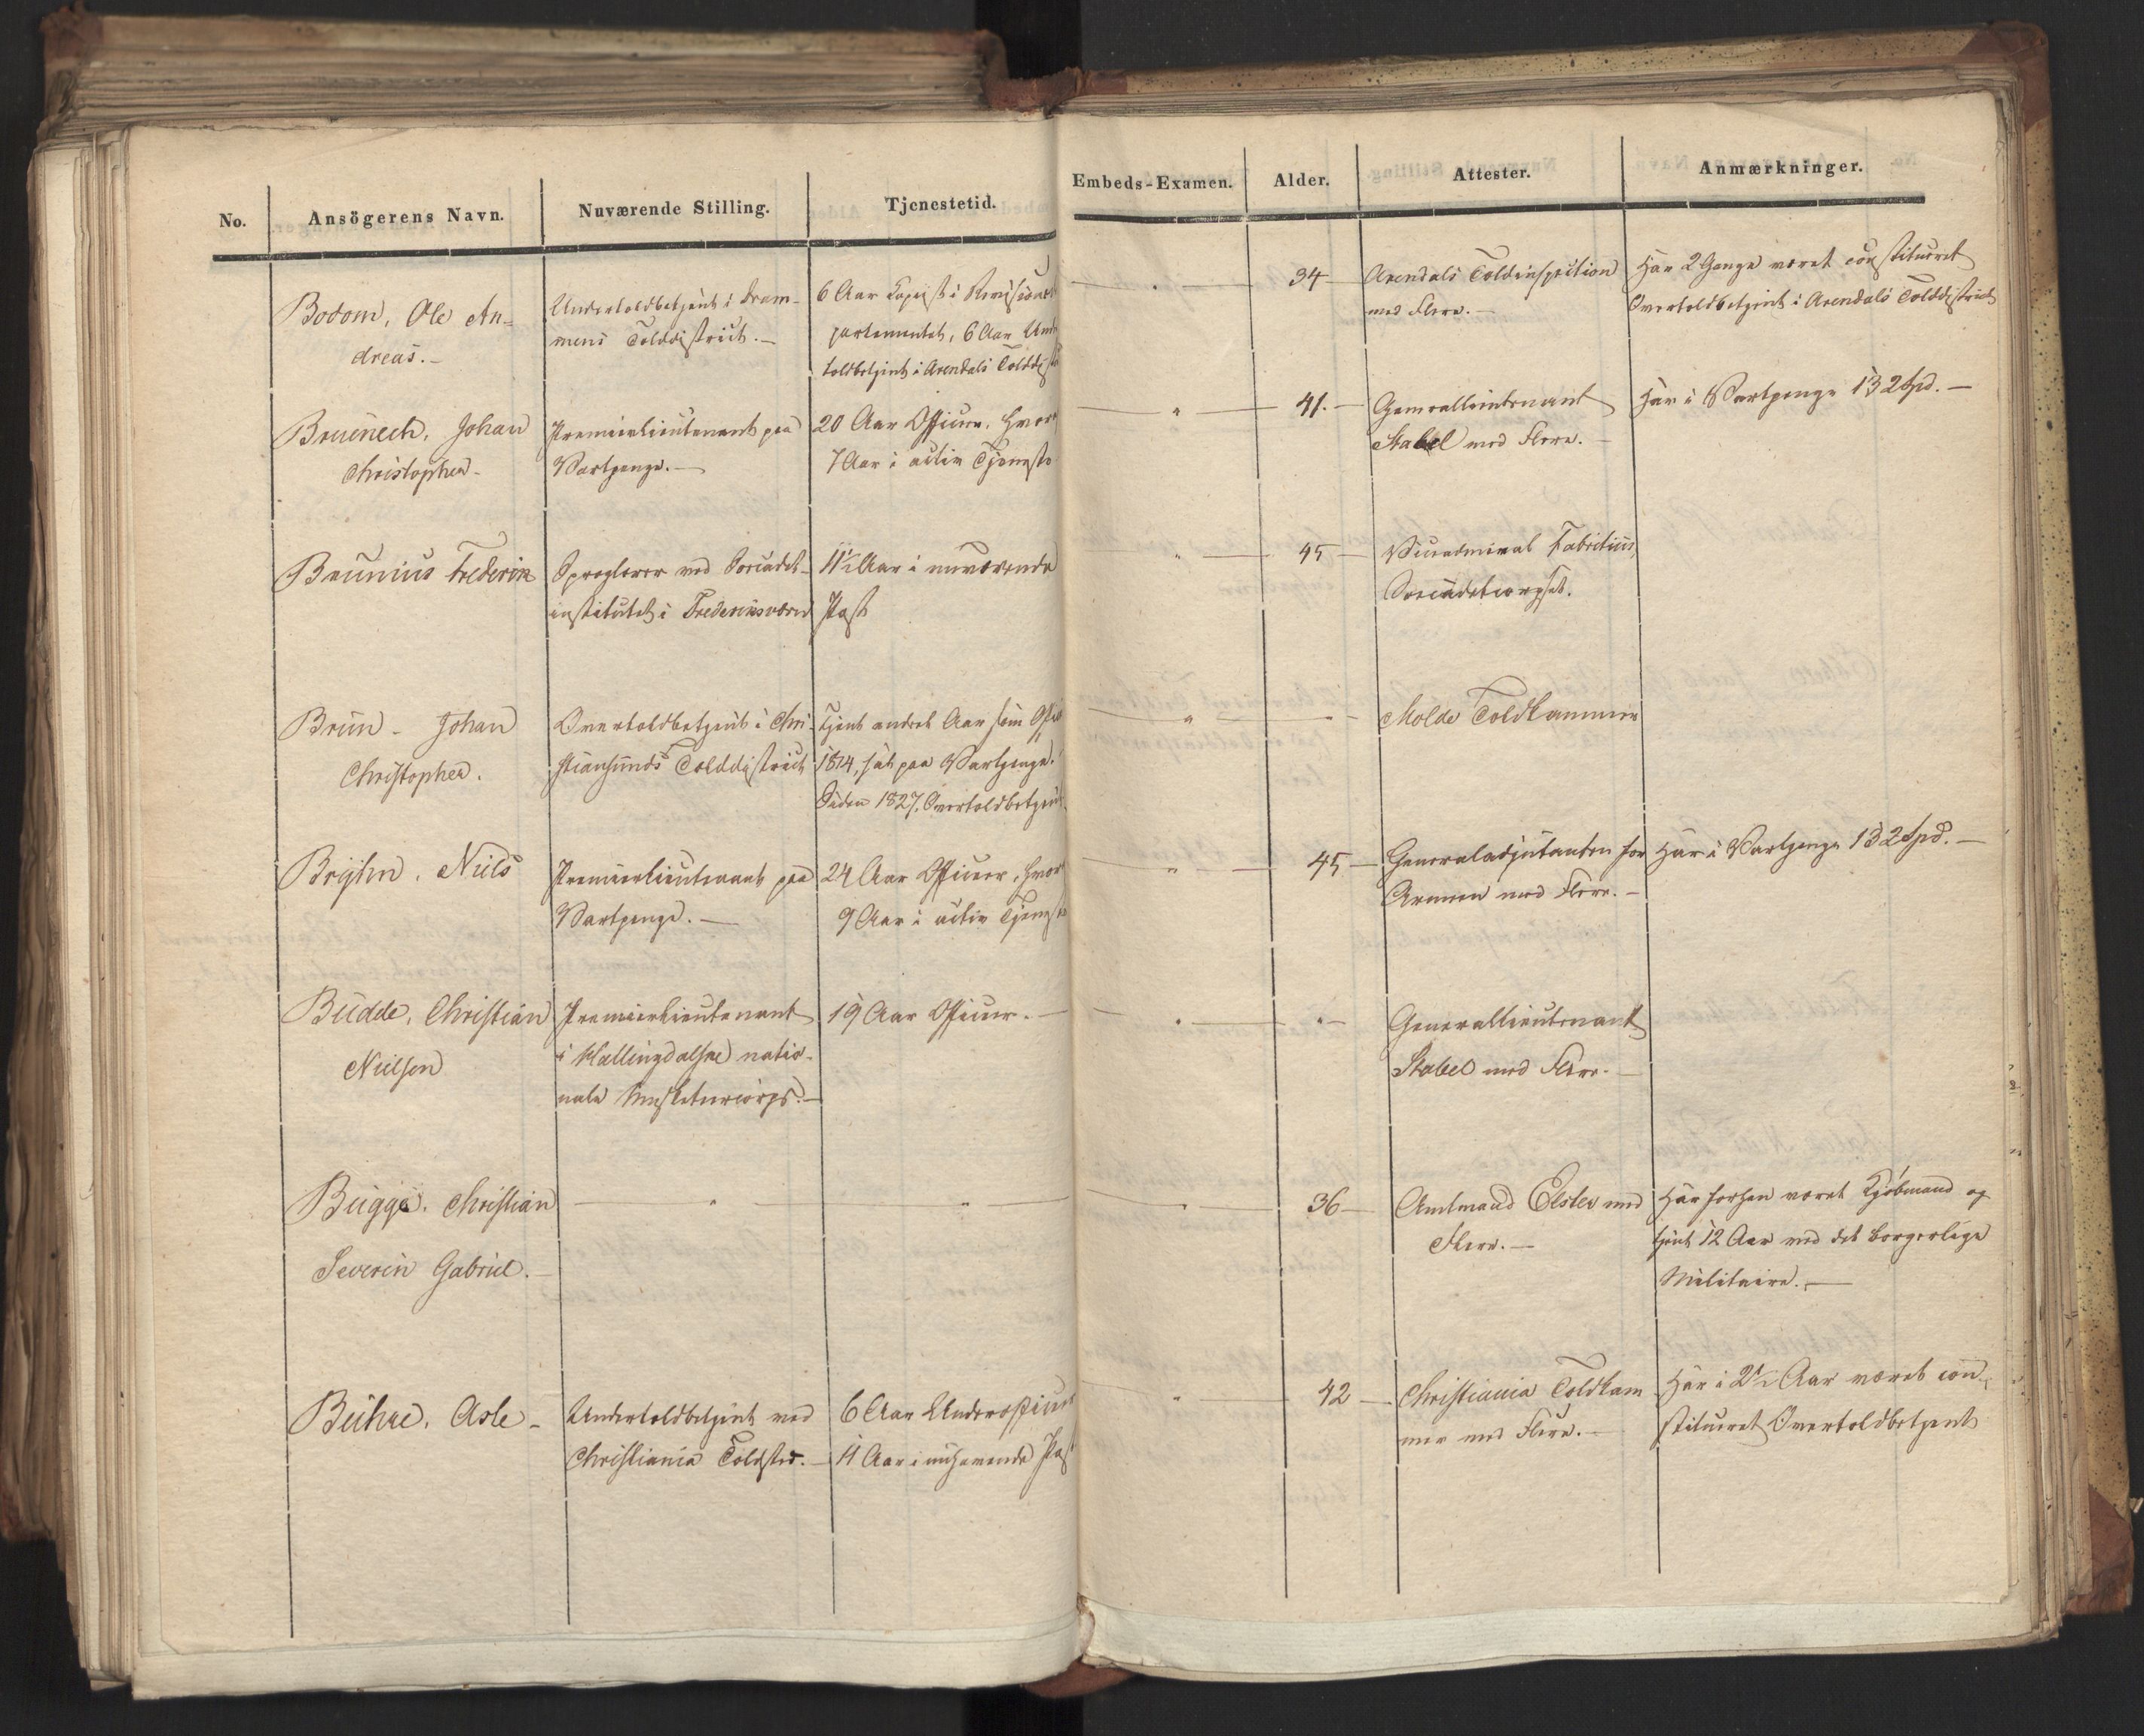 No. Ansögerens Navn. Nuværende Stilling. Tjenestetid. Embeds-Examen. Alder. Attester. Anmærkninger.
Bodom, Ole An-
dreas.-
Undertoldbetjent i Dram-
mens Tolddistrict.-
6 Aar Copiist i Revisionsde
partementet, 6 Aar Und
toldbetjent i Arendals Tolddist
"
34
Arendals Toldinspection
med Flere.-
Har 2 Gange været constitueret
Overtoldbetjent i Arendals Tolddistrict
Bruenech, Johan
Christopher-
Premierlieutenant paa
Vartpenge.-
20 Aar Officier, hvoraf
7 Aar i activ Tjeneste
"
41.
Generallieutenant
Stabel med Flere.
Har i Vartpenge 132 Spd.-
Brunius Frederik
Sproglærer ved Søcadet-
institutet i Frederiksværn
11½ Aar i nuværende
Post
"
45
Viceadmiral Fabritius,
Søcadetcorpset.
Brun - Johan
Christopher.
Overtoldbetjent i Chri-
stiansunds Tolddistrict
Tjent endeel Aar som Offic
1814, sat paa Vartpenge.
Siden 1827, Overtoldbetjent.
"
"
Molde Toldkammer
Bryhn, Niels
Premierlieutenant paa
Vartpenge.-
24 Aar Officier, hvor
9 Aar i activ Tjeneste
"
45
Generaladjutanten for
Armeen med Flere.-
Har i Vartpenge 132 Spd.-
Budde, Christian
Nielsen
Premierlieutenant
i Hallingdalske natio-
nale Musketeercorps.-
19 Aar Officier.-
"
"
Generallieutenant
Stabel med Flere.-
Bugge, Christian
Severin Gabriel.-
"
"
"
36
Amtmand Elster med
Flere.-
Har forhen været Kjøbmand og
tjent 12 Aar ved det borgerlige
Militaire.-
Buhre, Asle-
Undertoldbetjent ved
Christiania Toldsted.-
6 Aar Underofficier
11 Aar i nuhavende Post
"
42
Christiania Toldkam
mer med Flere.-
Har i 2½ Aar været con-
stitueret Overtoldbetjent